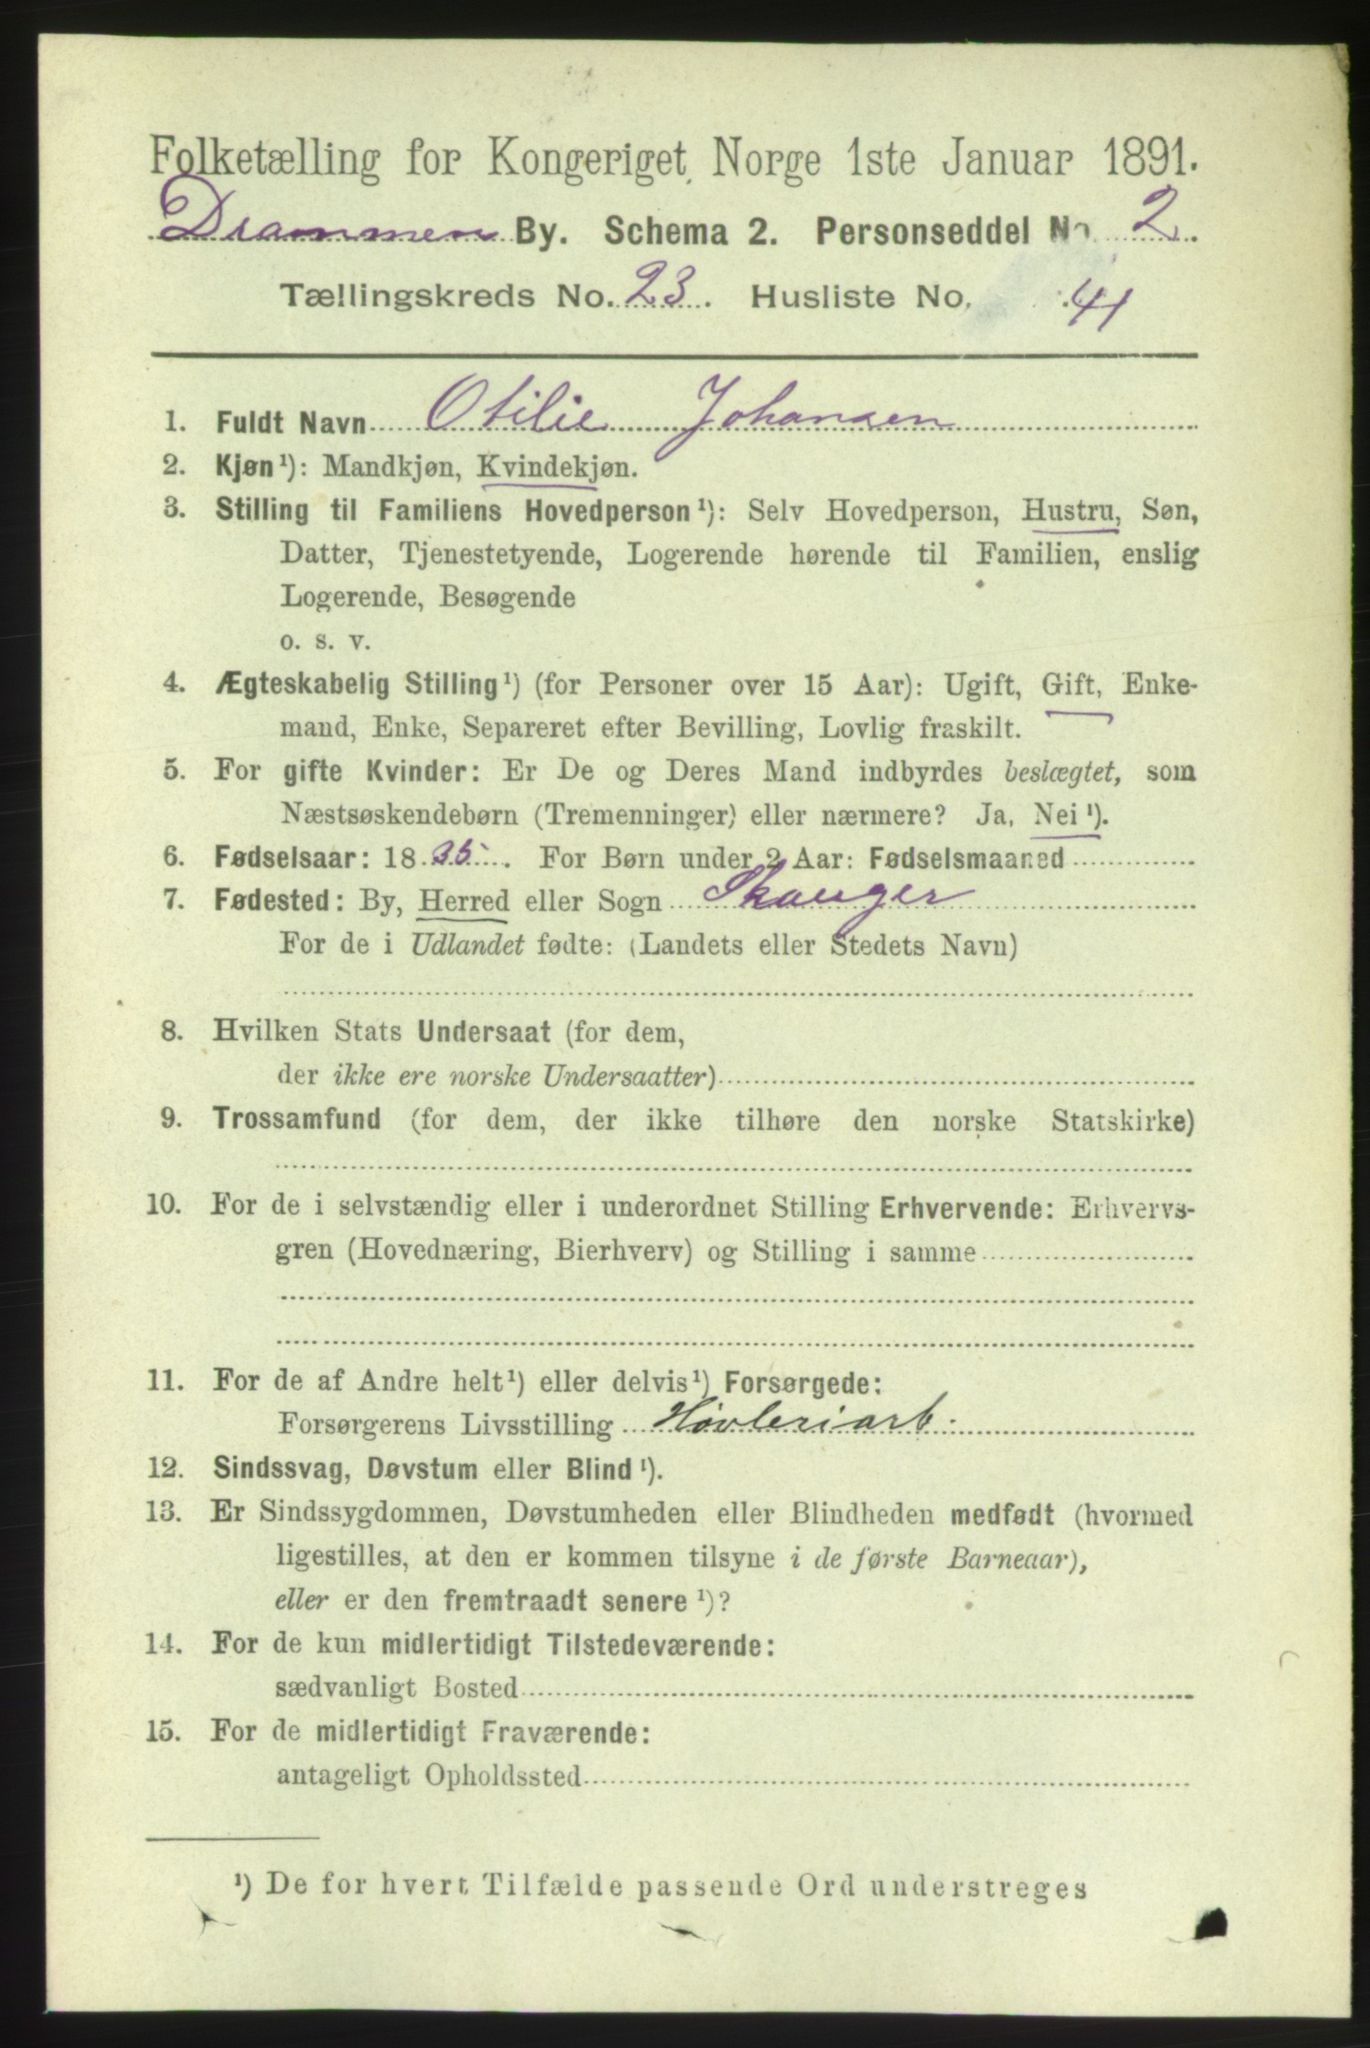 Folketælling for Kongeriget Norge 1ste Januar 1891.
Drammen By. Schema 2. Personseddel No. 2
Tællingskreds No. 23. Husliste No. 41
1. Fuldt Navn Otilie Johansen
2. Kjøn¹): Mandkjøn, Kvindekjøn.
3. Stilling til Familiens Hovedperson¹): Selv Hovedperson, Hustru, Søn,
Datter, Tjenestetyende, Logerende hørende til Familien, enslig
Logerende, Besøgende
o. s. v.
4. Ægteskabelig Stilling¹) (for Personer over 15 Aar): Ugift, Gift, Enke-
mand, Enke, Separeret efter Bevilling, Lovlig fraskilt.
5. For gifte Kvinder: Er De og Deres Mand indbyrdes beslægtet, som
Næstsøskendebørn (Tremenninger) eller nærmere? Ja, Nei¹).
6. Fødselsaar: 1835. For Børn under 2 Aar: Fødselsmaaned
7. Fødested: By, Herred eller Sogn Skauger
For de i Udlandet fødte: (Landets eller Stedets Navn)
8. Hvilken Stats Undersaat (for dem,
der ikke ere norske Undersaatter)
9. Trossamfund (for dem, der ikke tilhøre den norske Statskirke)
10. For de i selvstændig eller i underordnet Stilling Erhvervende: Erhvervs-
gren (Hovednæring, Bierhverv) og Stilling i samme
11. For de af Andre helt¹) eller delvis¹) Forsørgede:
Forsørgerens Livsstilling Høvleriarb.
12. Sindssvag, Døvstum eller Blind¹).
13. Er Sindssygdommen, Døvstumheden eller Blindheden medfødt (hvormed
ligestilles, at den er kommen tilsyne i de første Barneaar),
eller er den fremtraadt senere¹)?
14. For de kun midlertidigt Tilstedeværende:
sædvanligt Bosted
15. For de midlertidigt Fraværende:
antageligt Opholdssted
¹) De for hvert Tilfælde passende Ord understreges